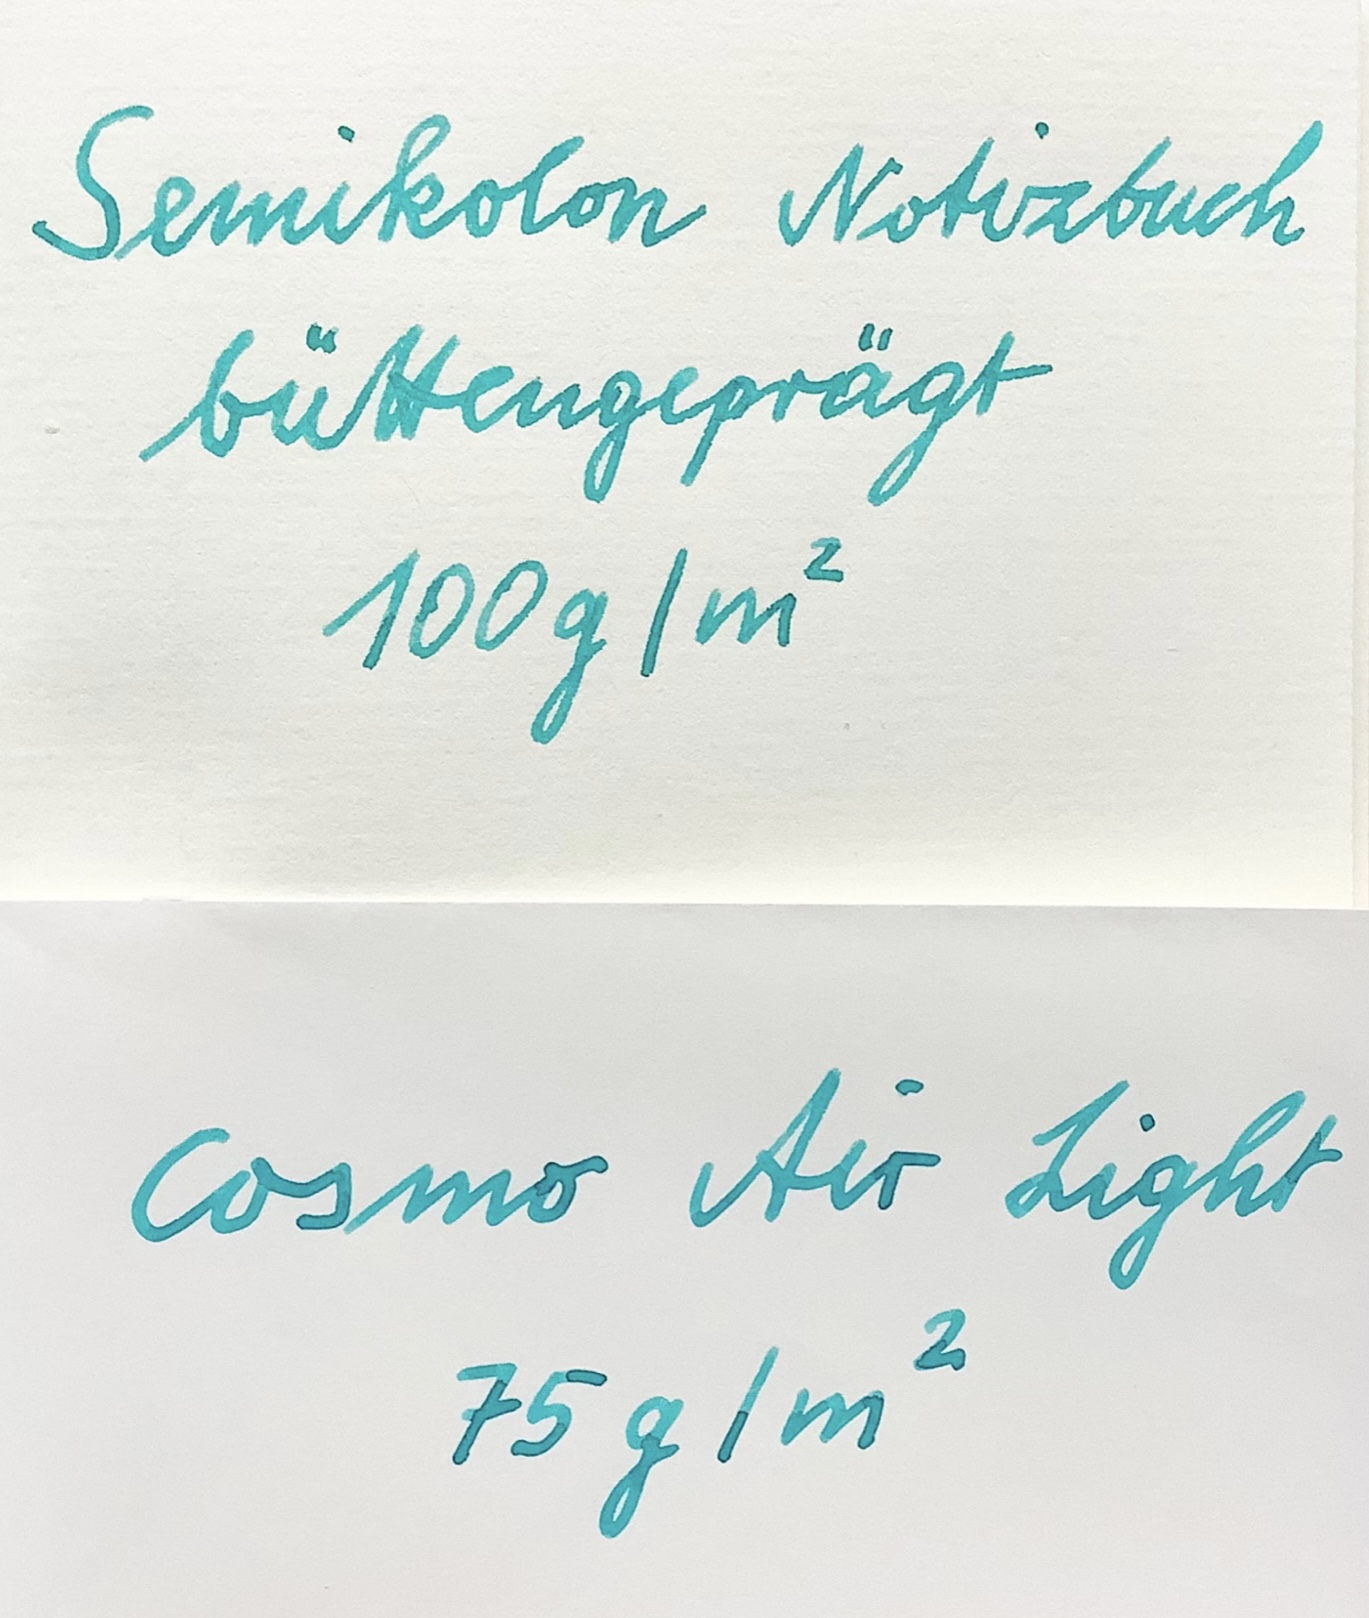 Semikolon Notizbuch
büttengeprägt
100g/m²
Cosmo Air Light
75g/m²